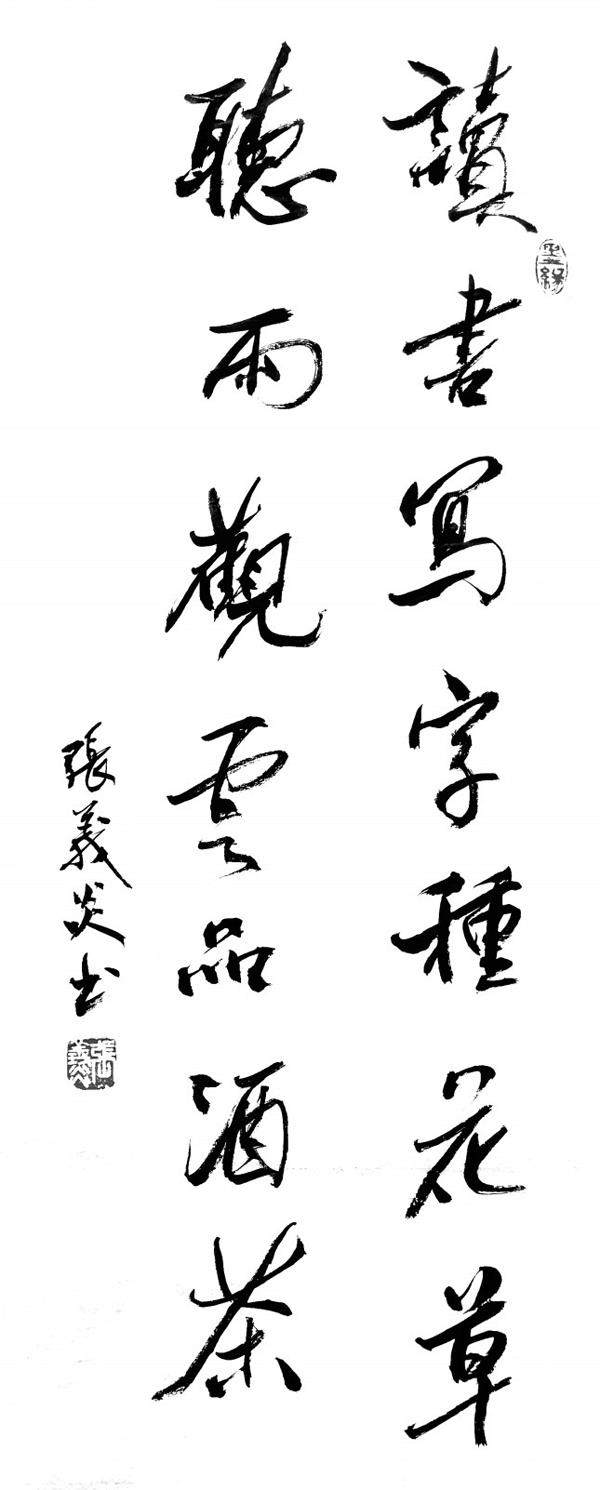 讀書寫字種花草
聽雨觀雲品酒茶
張義炎书